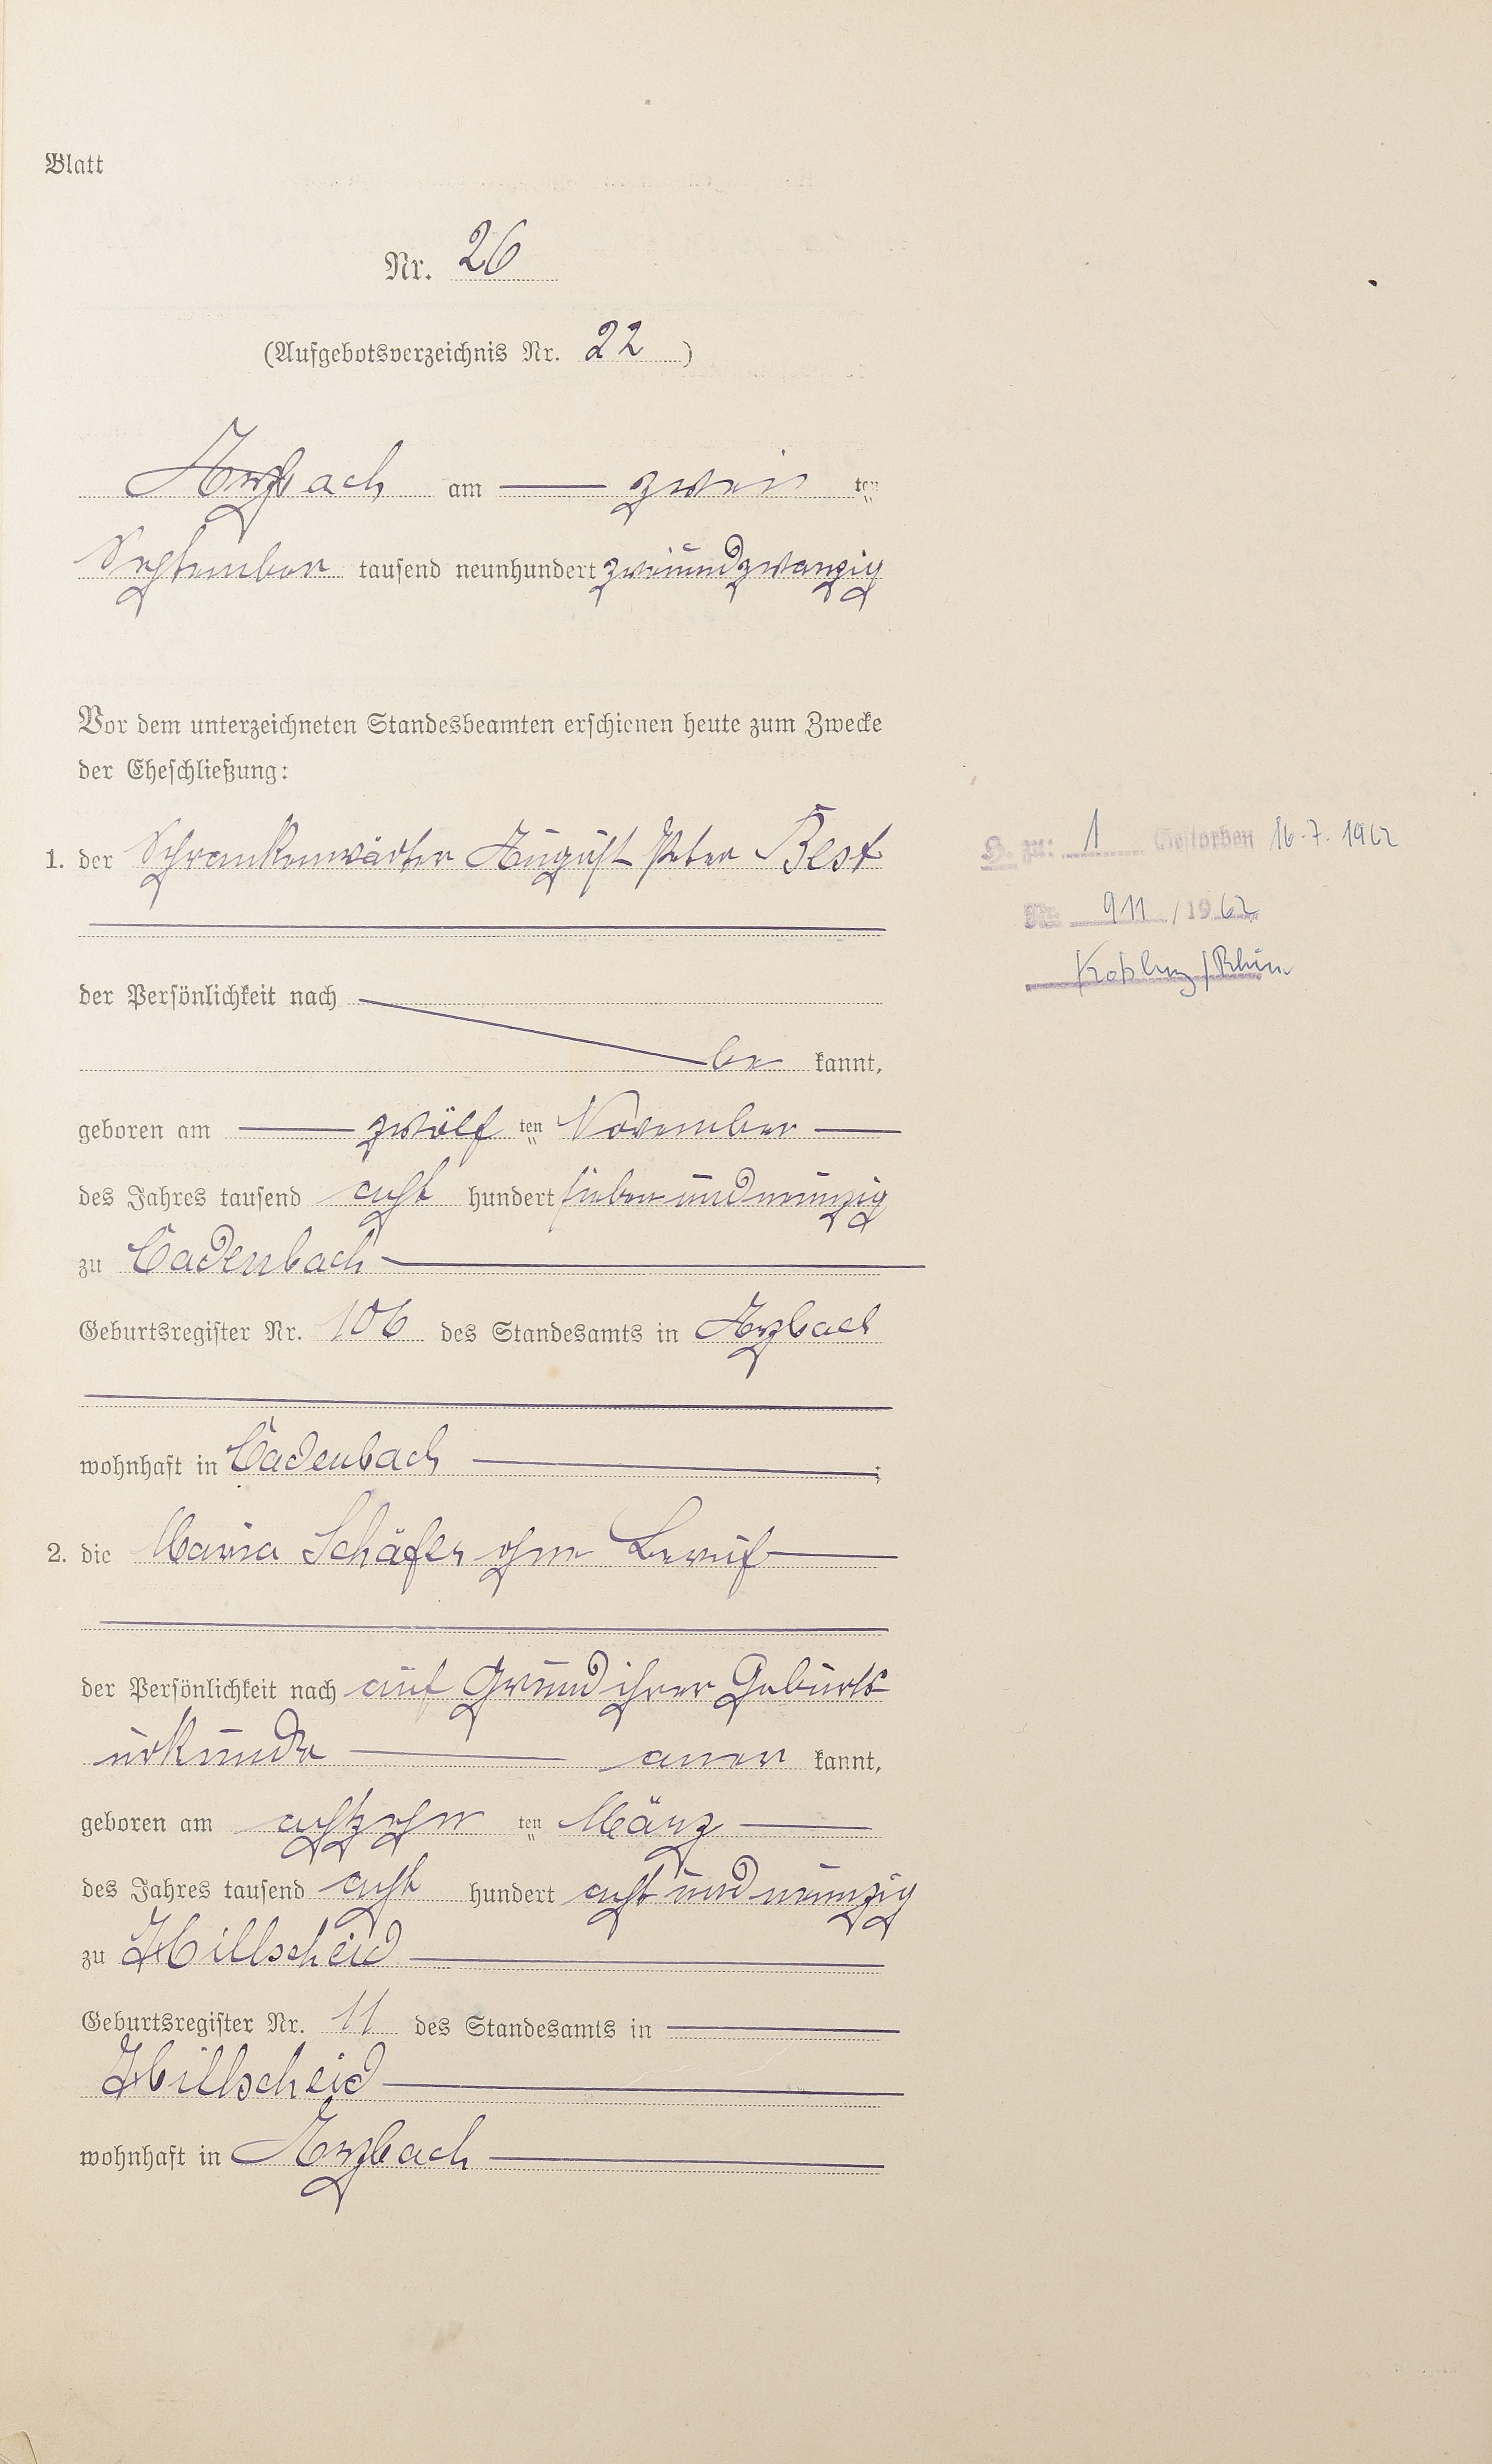 Blatt
Nr. 26
(Aufgebotsverzeichnis Nr. 22)
Arzbach am zwei ten
September tausend neunhundert zweiundzwanzig
Vor dem unterzeichneten Standesbeamten erschienen heute zum Zwecke
der Eheschließung:
1. der Schrankenwärter August Peter Best
H. zu: 1 Gestorben 16.7.1962
Nr. 911 / 1962
Koblenz / Rhein
der Persönlichkeit nach
be kannt,
geboren am zwölf ten November
des Jahres tausend acht hundert siebenundneunzig
zu Cadenbach
Geburtsregister Nr. 106 des Standesamts in Arzbach
wohnhaft in Cadenbach ;
2. die Maria Schäfer ohne Beruf
der Persönlichkeit nach auf Grund ihrer Geburts
urkunde aner kannt,
geboren am achtzehn ten März
des Jahres tausend acht hundert acht und neunzig
zu Hillscheid
Geburtsregister Nr. 11 des Standesamts in
Hillscheid
wohnhaft in Arzbach